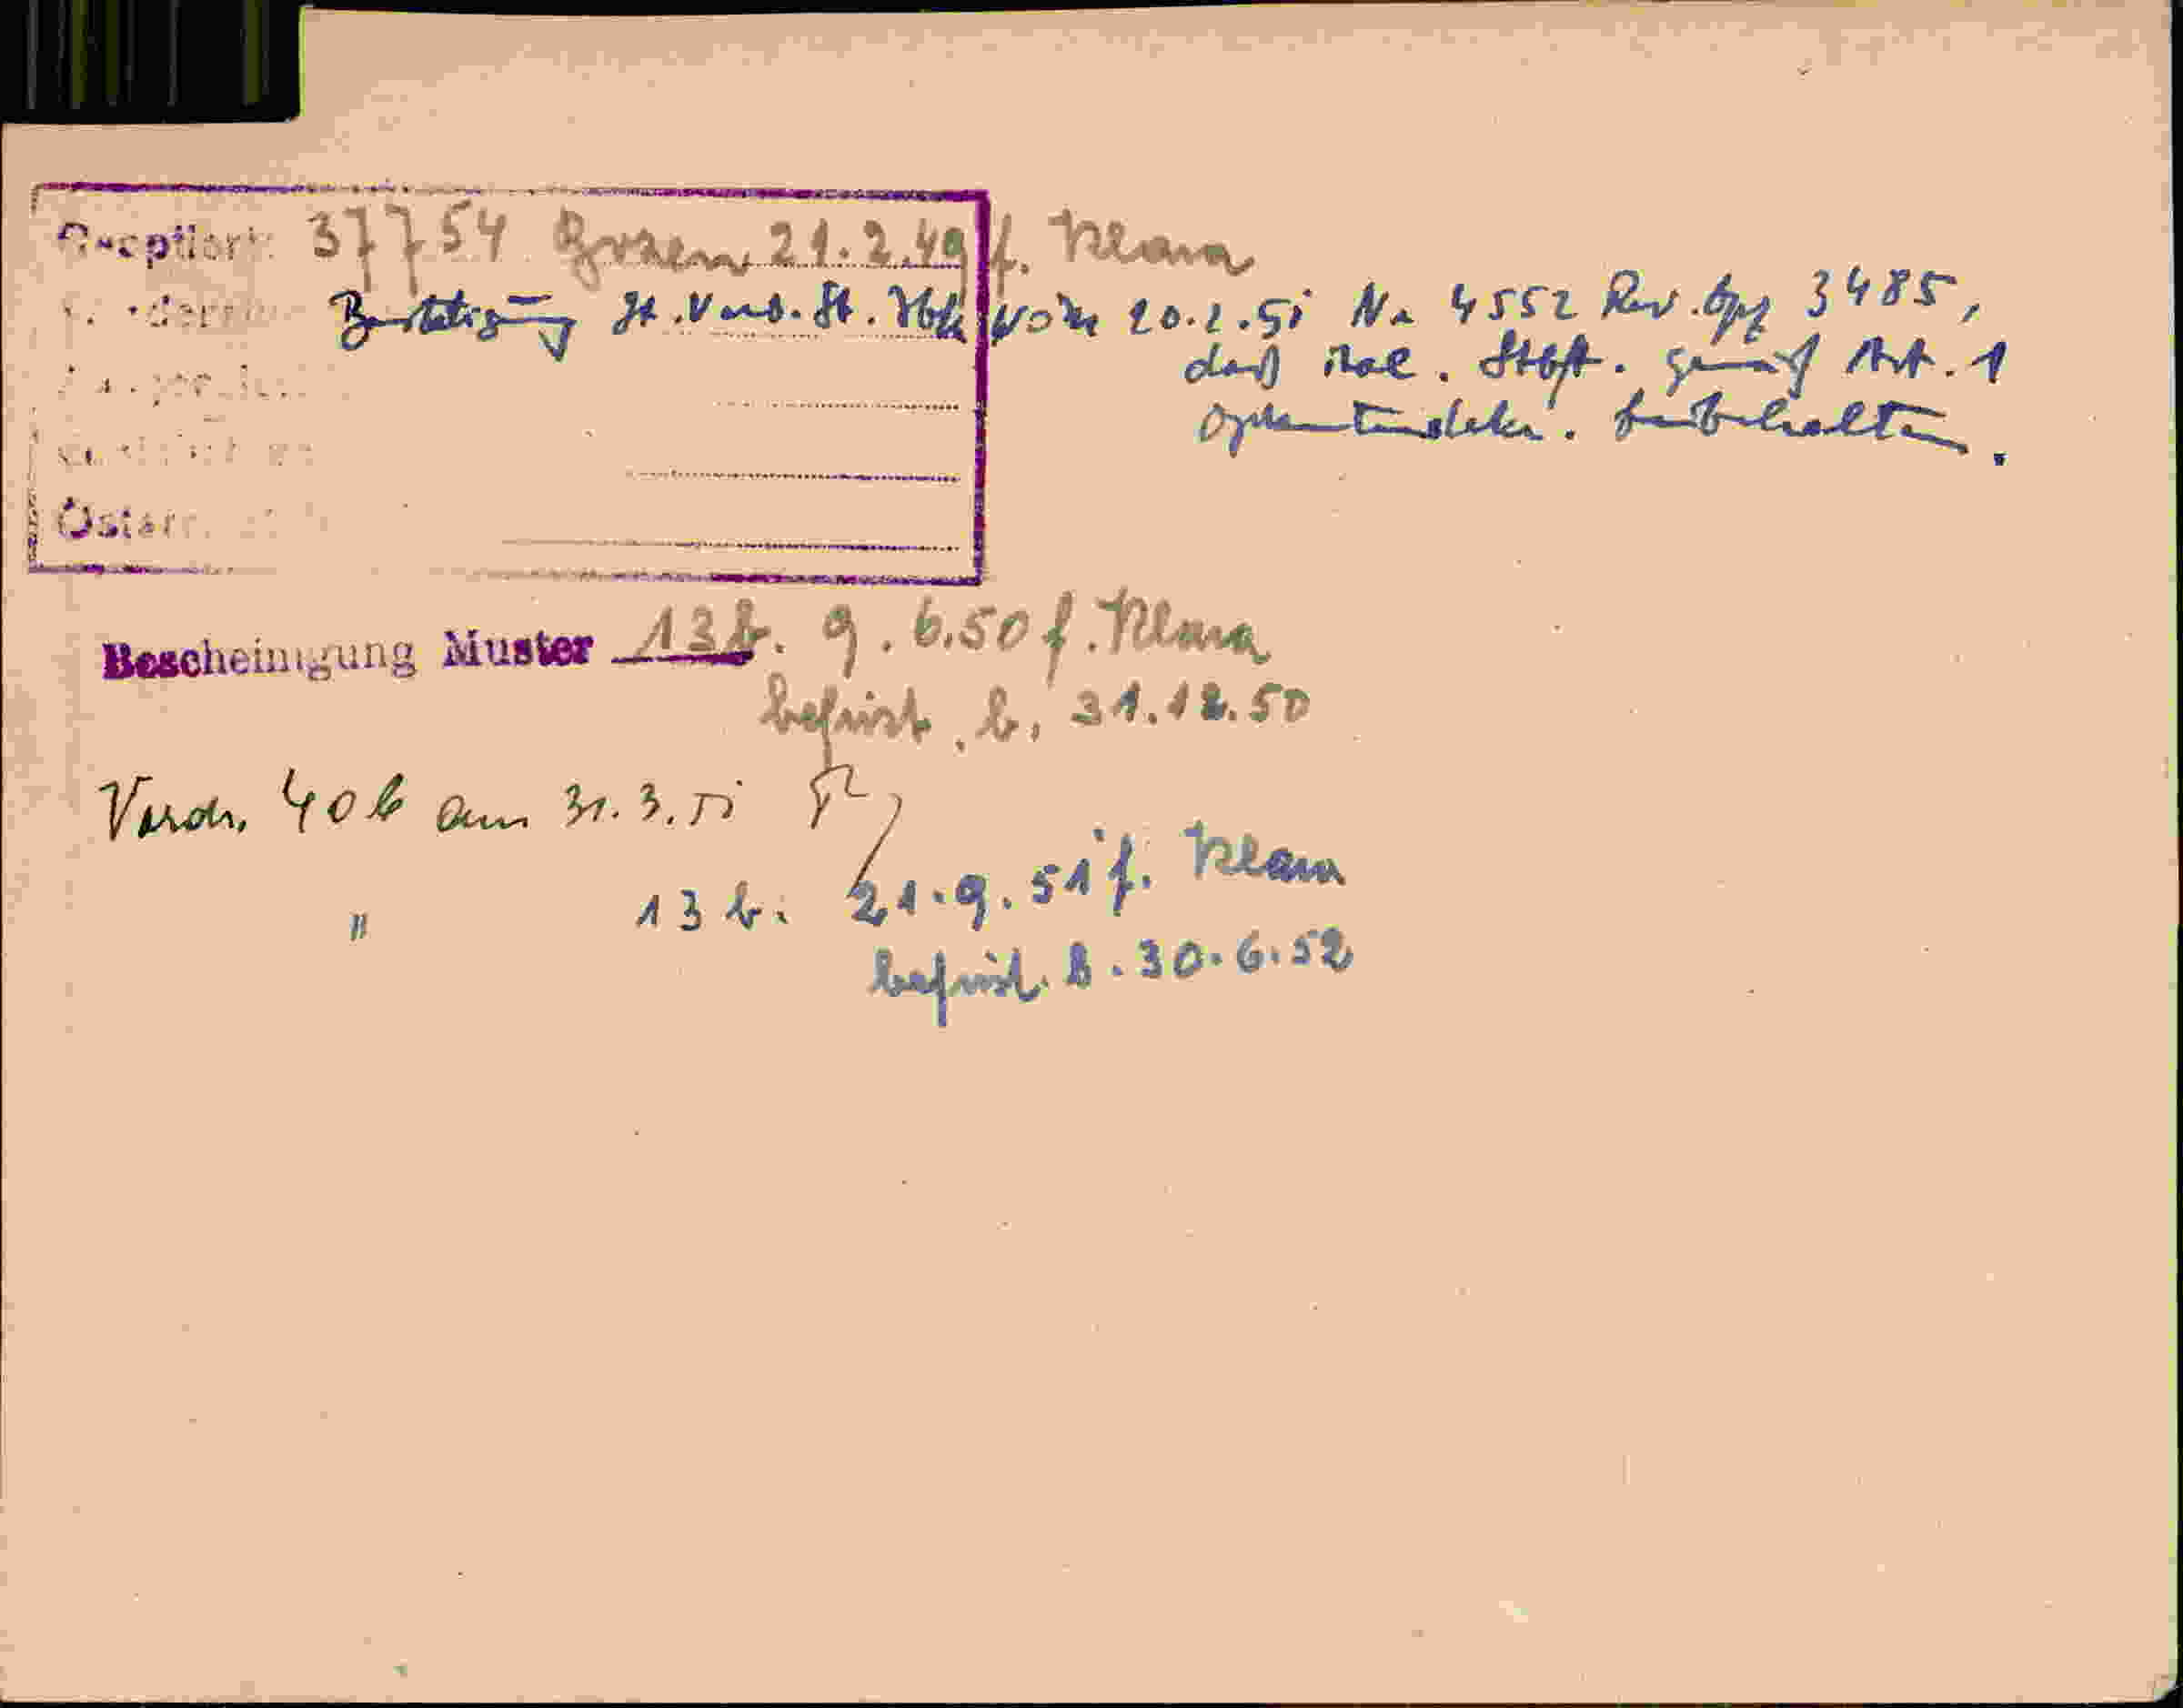 37754 Bozen 21.2.49 f. Klara
Bestätigung It. Vend. St. Ibk vom 20.2.51 Nr. 4552 Rev. Opz 3485,
daß ital. Stbft. gemäß Art. 1
Optantendekr. beibehalten.
Österr
Bescheinigung Muster 13b. 9.6.50 f. Klara
befrist. b. 31.12.50
Vordr. 40b am 31.3.51
" 13b. 21.9.51 f. Klara
befrist. b. 30.6.52